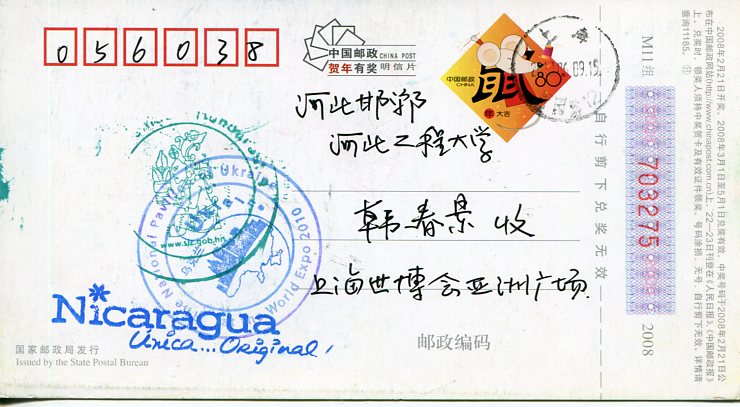 056038
中国邮政 CHINA POST
贺年有奖 明信片
中国邮政
CHINA
鼠
80分
年 大吉
河北邯郸
河北工程大学
韩春景 收
上海世博会亚洲广场
邮政编码
国家邮政局发行
Issued by the State Postal Bureau
Nicaragua
Unica... Original!
www.sic.gob.hn
National Pavilion of Ukraine
World Expo 2010
自行剪下兑奖无效
M11组
703275
2008
2008年2月21日开奖。2008年3月1日至5月1日兑奖有效。中奖号码于2008年2月21日公
布在中国邮政网站(http://www.chinapost.com.cn)上、22—23日刊登在《人民日报》、《中国邮政报》
上。兑奖时,领奖人须持中奖贺卡及有效证件领奖。号码涂损、无号、自行剪下无效。详情请
垂询11185。